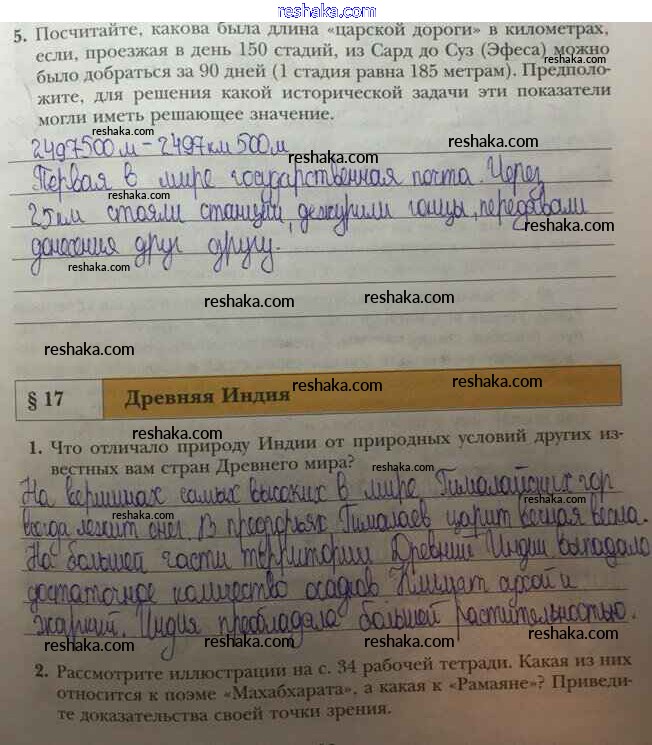 reshaka.com
5. Посчитайте, какова была длина «царской дороги» в километрах,
если, проезжая в день 150 стадий, из Сард до Суз (Эфеса) можно
было добраться за 90 дней (1 стадия равна 185 метрам). Предполо-
жите, для решения какой исторической задачи эти показатели
могли иметь решающее значение.
reshaka.com
reshaka.com
2497500м – 2497км 500м
reshaka.com
Первая в мире государственная почта. Через
reshaka.com
25км стояли станции, дежурили гонцы, передавали
reshaka.com
донесения друг другу.
reshaka.com
reshaka.com
reshaka.com
reshaka.com
§ 17
Древняя Индия
reshaka.com
reshaka.com
reshaka.com
1. Что отличало природу Индии от природных условий других из-
вестных вам стран Древнего мира?
reshaka.com
На вершинах самых высоких в мире Гималайских гор
reshaka.com
reshaka.com
всегда лежит снег. В предгорьях Гималаев царит вечная весна.
На большей части территории Древний Индии выпадало
reshaka.com
reshaka.com
достаточное количество осадков Климат сухой и
reshaka.com
жаркий. Индия преобладала большей растительностью.
reshaka.com
reshaka.com
2. Рассмотрите иллюстрации на с. 34 рабочей тетради. Какая из них
относится к поэме «Махабхарата», а какая к «Рамаяне»? Приведи-
те доказательства своей точки зрения.
reshaka.com